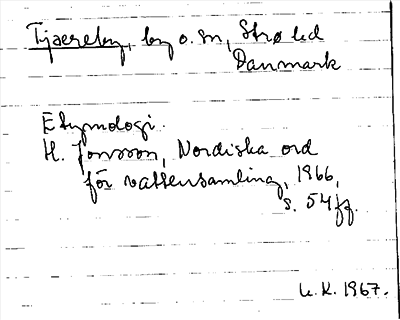 Tjæreby, by o. sn, Strø hd
Danmark
Etymologi.
H. Jonsson, Nordiska ord
för vattensamling, 1966,
s. 54ff.
U.K. 1967.